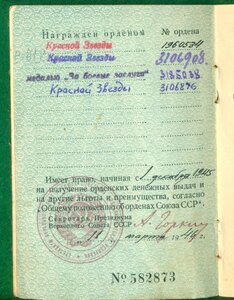 Награжден орденом № ордена
Красной Звезды 1960534
Красной Звезды 3106908
медалью „За боевые заслуги" 3185038
Красной Звезды
Имеет право, начиная с 1 декабря 1945
на получение орденских денежных выдач и
на другие льготы и преимущества, согласно
„Общему положению об орденах Союза ССР".
Секретарь Президиума
Верховного Совета СССР А. Горкин
марта 19 г.
№ 582873